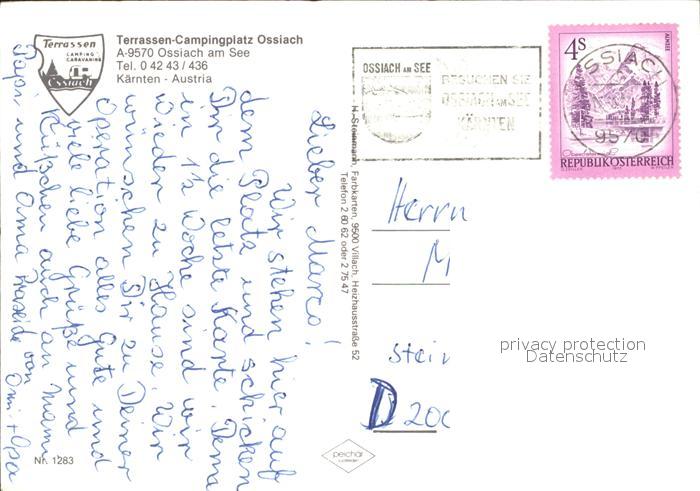 Terrassen
CAMPING
CARAVANING
Ossiach
Terrassen-Campingplatz Ossiach
A-9570 Ossiach am See
Tel. 0 42 43 / 436
Kärnten - Austria
Lieber Marco!
Wir stehen hier auf
dem Platz und schicken
Dir die letzte Karte. Denn
in 1½ Woche sind wir
wieder zu Hause. Wir
wünschen Dir zu Deiner
Operation alles Gute und
viele liebe Grüße und
Küßchen auch an Mami
Papi und Oma
von
Omi + Opa
Nr. 1283
H. Steinmann, Farbkarten, 9500 Villach, Heizhausstraße 52
Telefon 2 60 62 oder 2 75 47
OSSIACH AM SEE
BESUCHEN SIE
OSSIACH AM SEE
KÄRNTEN
4S
ALMSEE
OSSIACH
9570
REPUBLIK ÖSTERREICH
Herrn
M
Stei
D 200
privacy protection
Datenschutz
peichär